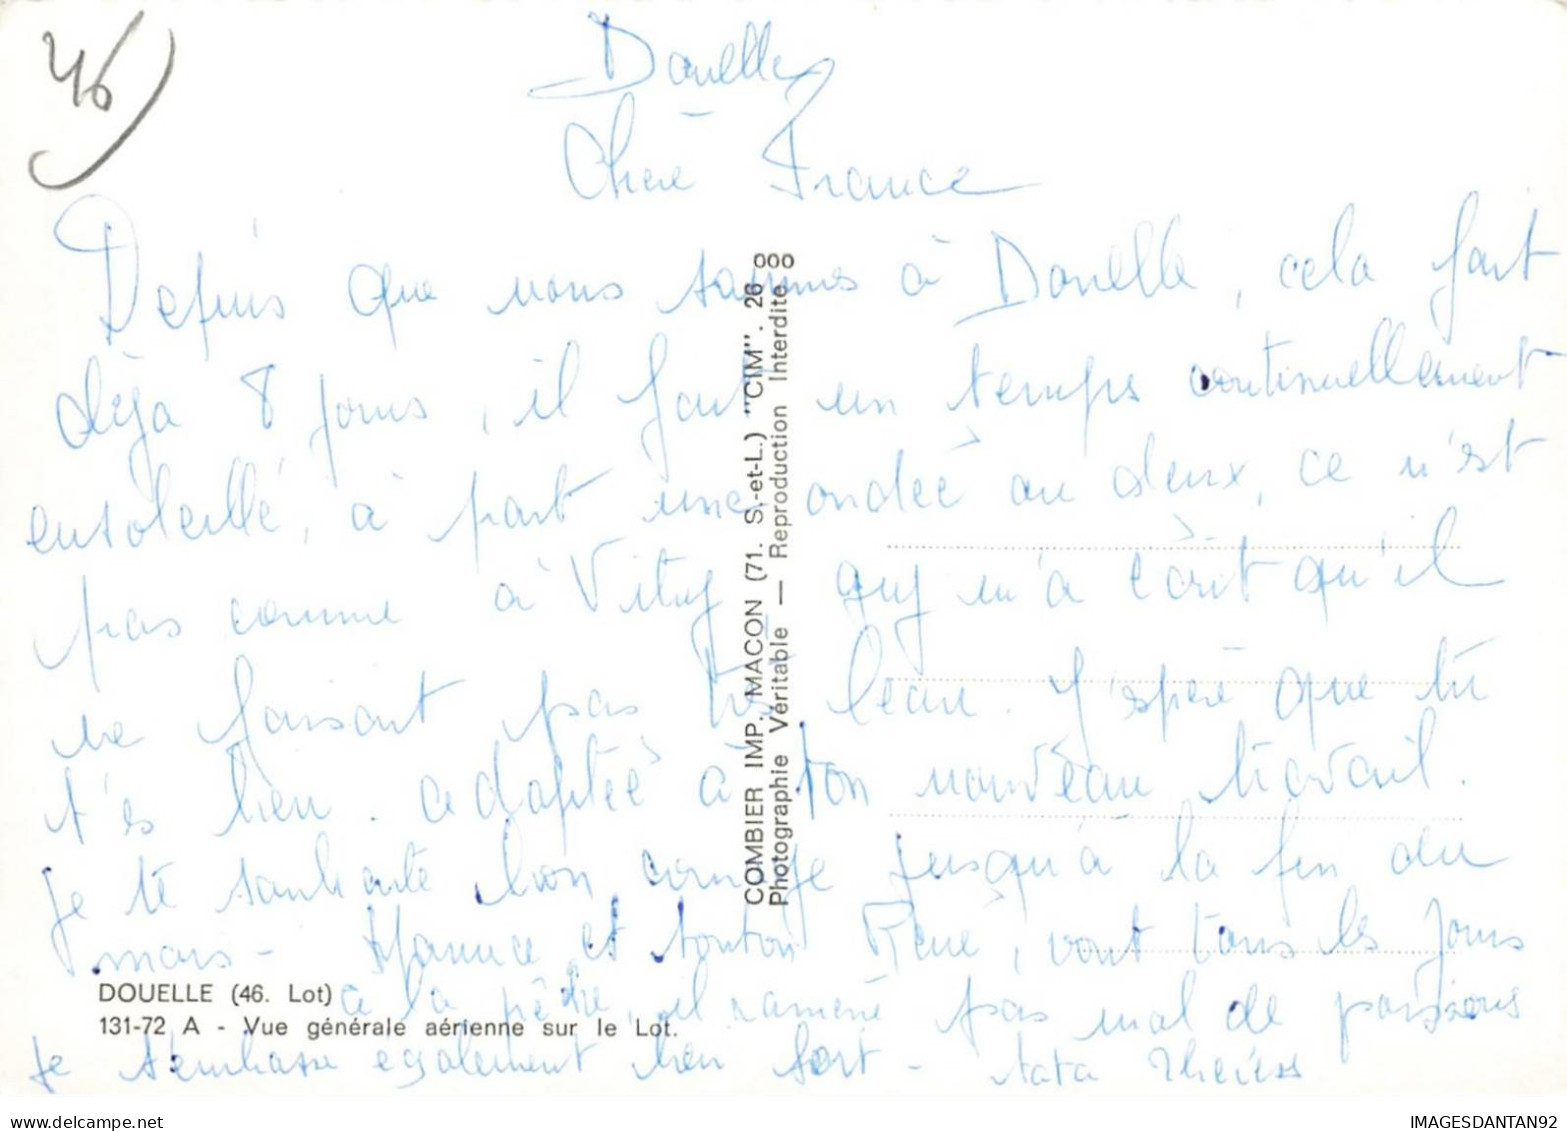 46
Douelle
Chère France
Depuis que nous sommes à Douelle, cela fait
dèja 8 jours, il fait un temps continuellement
ensoleillé, à part une ondée ou deux, ce n'est
pas comme à Vitry Guy m'a écrit qu'il
ne faisait pas très beau. J'espère que tu
t'es bien adaptée à ton nouveau travail.
je te souhaite bon courage jusqu'à la fin du
mois - et tonton René, vont tous les jours
à la pêche, il ramène pas mal de poissons
Je t'embrasse également bien fort - tata Thérèse
DOUELLE (46. Lot)
131-72 A - Vue générale aérienne sur le Lot.
COMBIER IMP. MACON (71. S.-et-L.) "CIM". 26 000
Photographie Véritable — Reproduction Interdite
IMAGESDANTAN92